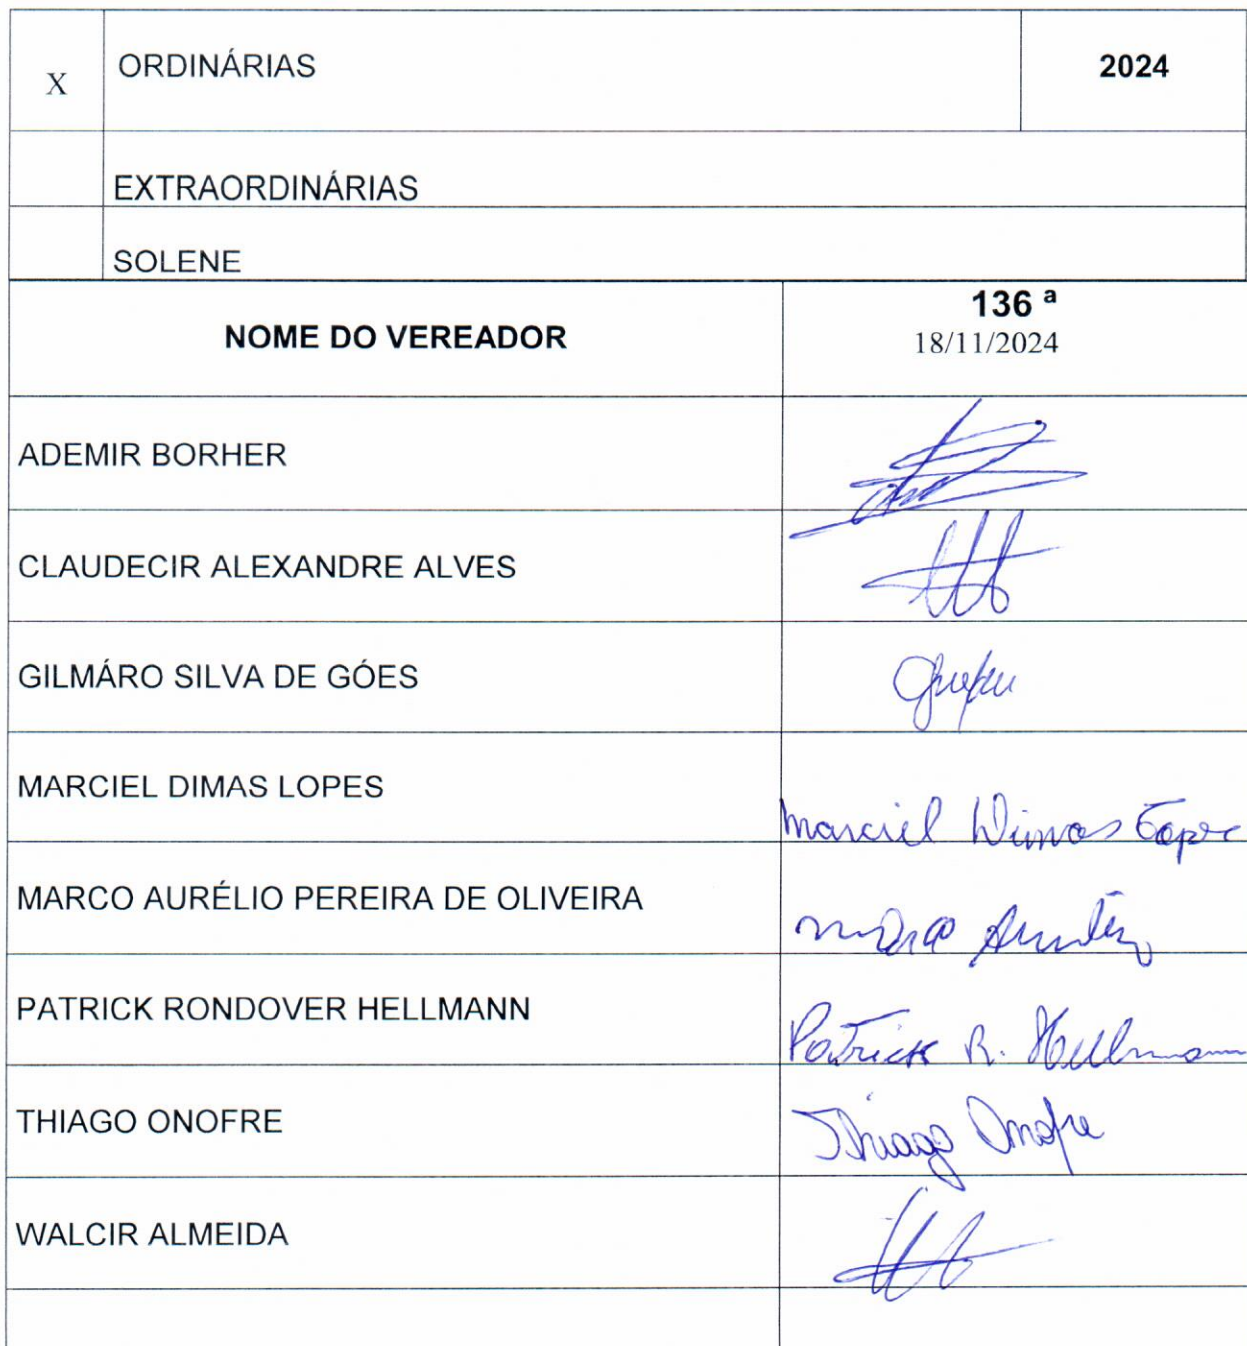 X ORDINÁRIAS 2024
EXTRAORDINÁRIAS
SOLENE
NOME DO VEREADOR 136 ª
18/11/2024
ADEMIR BORHER
CLAUDECIR ALEXANDRE ALVES
GILMÁRO SILVA DE GÓES
MARCIEL DIMAS LOPES Marciel Dimas Lopes
MARCO AURÉLIO PEREIRA DE OLIVEIRA
PATRICK RONDOVER HELLMANN Patrick R. Hellmann
THIAGO ONOFRE Thiago Onofre
WALCIR ALMEIDA